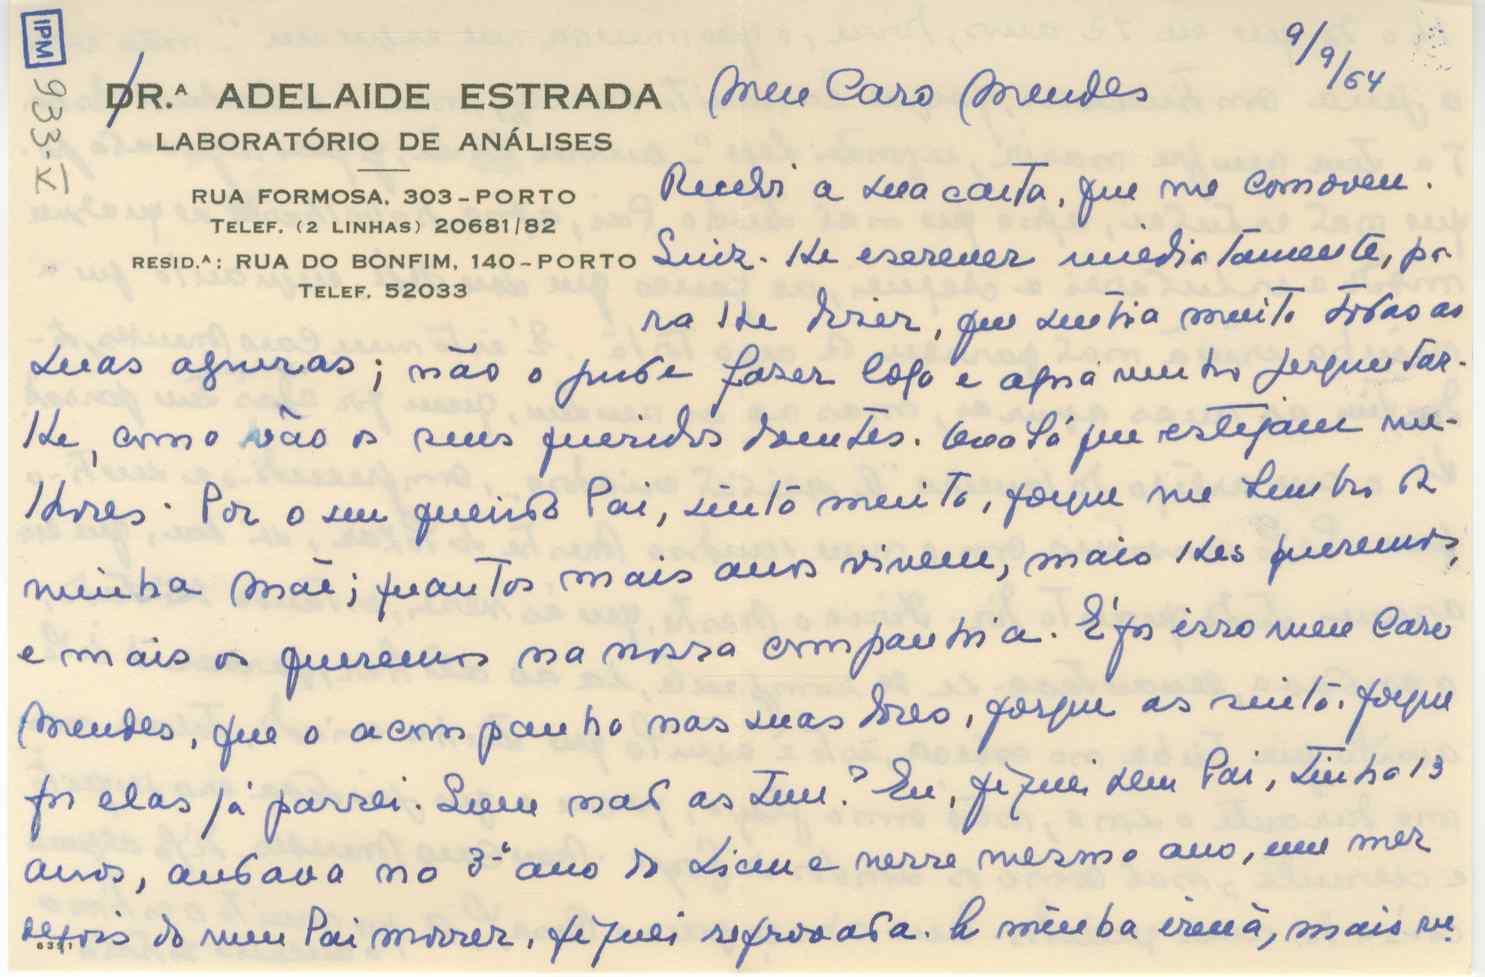 IPM
933-XI
9/9/64
DR.ᴬ ADELAIDE ESTRADA
LABORATÓRIO DE ANÁLISES
RUA FORMOSA, 303-PORTO
TELEF. (2 LINHAS) 20681/82
RESID.ᴬ: RUA DO BONFIM, 140-PORTO
TELEF. 52033
Meu Caro Mendes
Recebi a sua carta, que me comoveu.
Quiz-lhe escrever imediatamente, pa-
ra lhe dizer, que sentia muito todas as
suas agruras; não o pude fazer logo e agora venho perguntar-
lhe, como vão os seus queridos doentes. Oxalá que estejam me-
lhores. Por o seu querido Pai, sinto muito, porque me lembro da
minha Mãe; quantos mais anos vivem, mais lhes queremos,
e mais os queremos na nossa companhia. É por isso meu Caro
Mendes, que o acompanho nas suas dores, porque as sinto. porque
por elas já passei. Quem não as tem? Eu, fiquei sem Pai, tinha 13
anos, andava no 3.º ano do Liceu e nesse mesmo ano, um mez
depois do meu Pai morrer, fiquei reprovada. A minha irmã, mais ve-